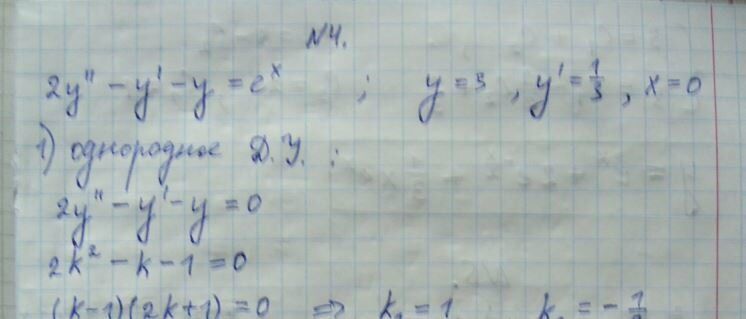 №4.
2y'' - y' - y = eˣ ; y = 3 , y' = 1/3 , x = 0
1) однородное Д.У. :
2y'' - y' - y = 0
2k² - k - 1 = 0
(k-1)(2k+1) = 0 ⇒ k₁ = 1 k₂ = - 1/2